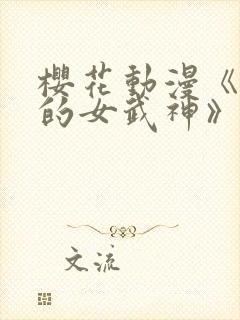 櫻花動漫《
的女武神》
文流